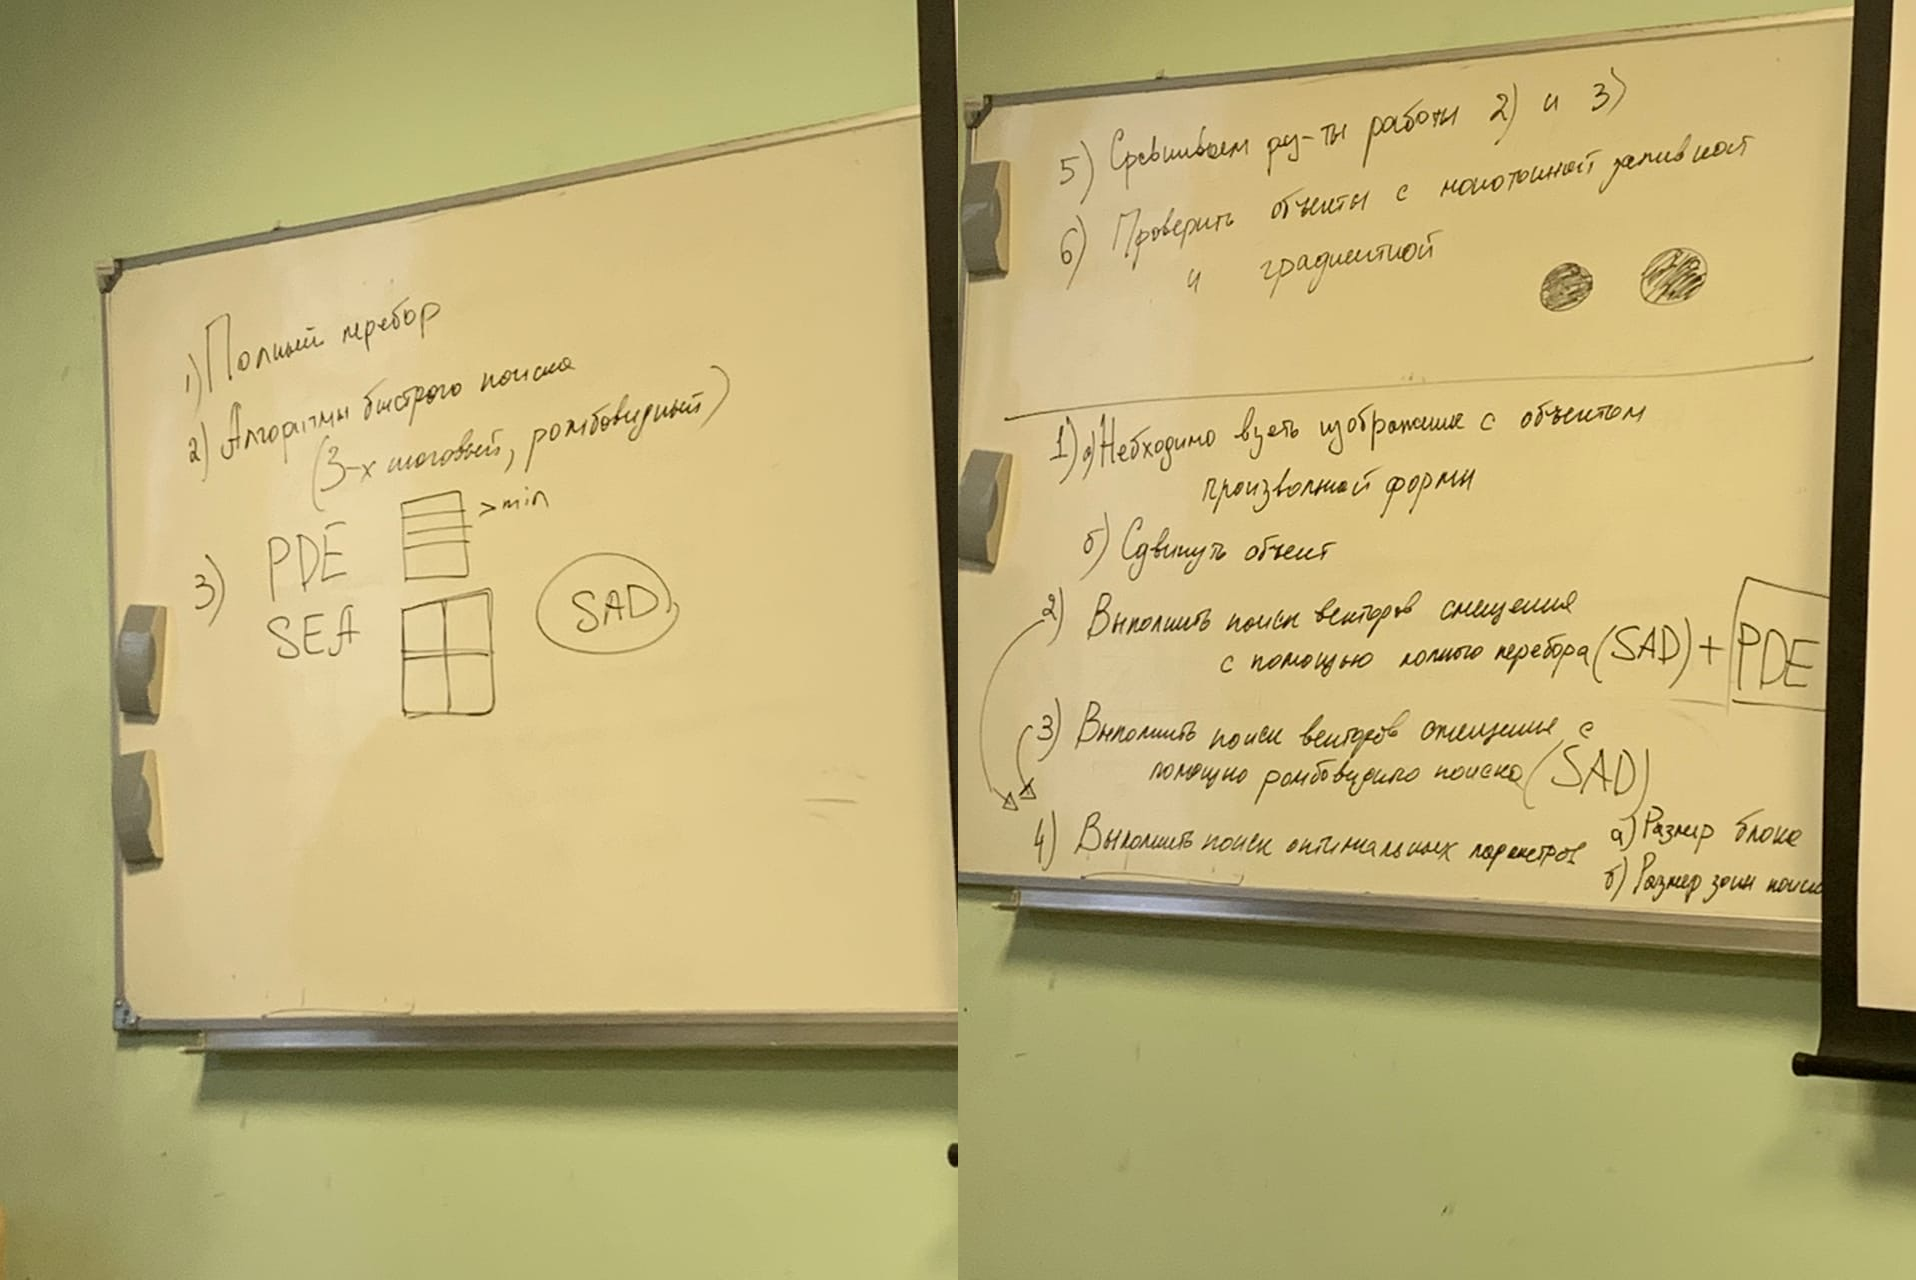 1) Полный перебор
2) Алгоритмы быстрого поиска
(3-х шаговый, ромбовидный)
3) PDE > min
SEA SAD
5) Сравниваем рез-ты работы 2) и 3)
6) Проверить объекты с монотонной заливкой
и градиентной
1) а) Необходимо взять изображение с объектом
произвольной формы
б) Сдвинуть объект
2) Выполнить поиск векторов смещения
с помощью полного перебора (SAD) + PDE
3) Выполнить поиск векторов смещения с
помощью ромбовидного поиска (SAD)
4) Выполнить поиск оптимальных параметров а) Размер блока
б) Размер зоны поиска